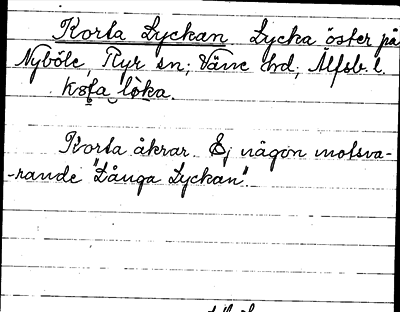 Korta Lyckan Lycka öster på
Nyböle Ryr sn; Väne hd; Älfsb. l.
Korta åkrar. Ej någon motsva-
-rande "Långa Lyckan".